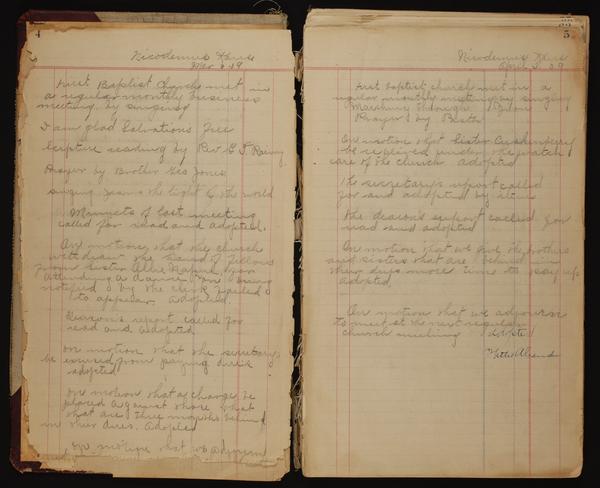 4
Nicodemus Kans
First Baptist Church met in
a regular monthly business
meeting by singing
I am glad Salvations Free
Scripture reading by Rev
Prayer by Brother Geo Jones
singing Jesus the light of the world
Minuets of last meeting
called for read and adopted.
On motion that the church
withdraw the hand of fellows
from Sister Allie
attending a dance being
notified by the clerk failed
to appear adopted.
Deacon's report called for
read and adopted
on motion that the secretary
be excused from paying
adopted
on motion that a charge be
placed against those that
that are three months behind
in their dues. Adopted
on motion that we adjourn
5
Nicodemus Kans
First baptist church met in a
regular monthly meeting by singing
Marching through
Prayer by Pastor
On motion that Sister
be replaced under the watch
care of the church adopted
The secretary's report called
for and adopted by items
The deacon's report called for
read and adopted
On motion that we give the brothers
and sisters that are behind in
their dues more time to pay up
adopted
On motion that we adjourn
to meet at the next regular
church meeting adopted